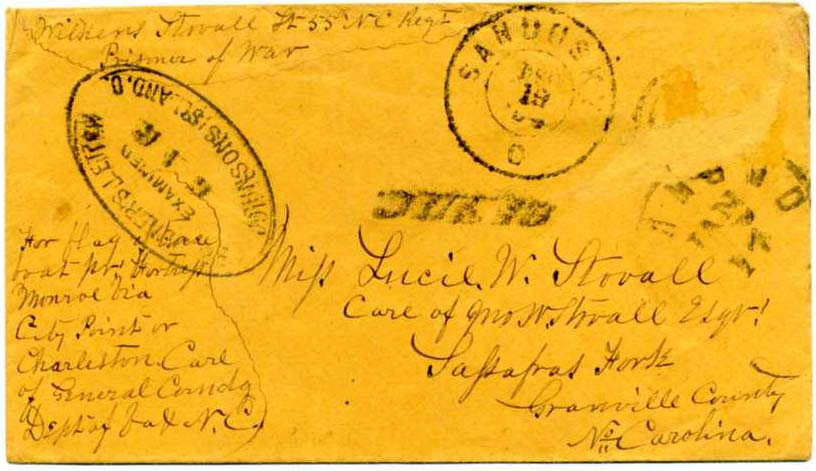 Wilkins Stovall Lt 55 N C Regt
Prisoner of War
SANDUSKY
DEC
18
O
PRISONER'S LETTER
EXAMINED
JOHNSONS ISLAND, O.
For flag of truce
boat pr. Fortress
Monroe Via
City Point or
Charleston. Care
of General Comdg
Dept of Va & N. C.
Miss Lucie. W. Stovall
Care of Jno W. Stovall Esqr.
Sassafras Fork
Granville County
No Carolina.